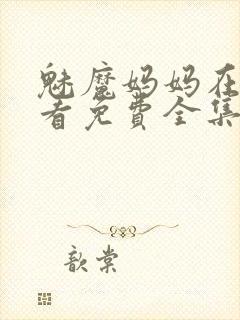 魅魔妈妈在
看免费全集
歆棠